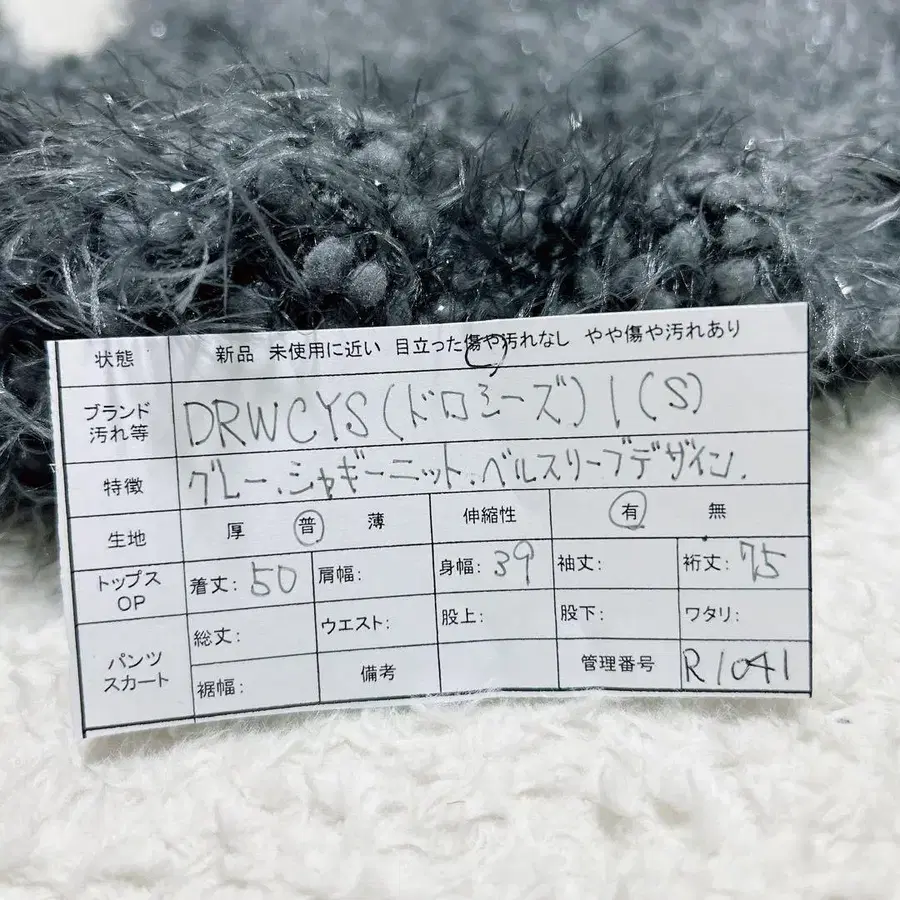 状態 新品 未使用に近い 目立った傷や汚れなし やや傷や汚れあり
ブランド 汚れ等 DRWCYS(ドロシーズ) 1(S)
特徴 グレー、シャギーニット、ベルスリーブデザイン.
生地 厚 普 薄 伸縮性 有 無
トップス OP 着丈:50 肩幅: 身幅:39 袖丈: 裄丈:75
パンツ スカート 総丈: ウエスト: 股上: 股下: ワタリ:
裾幅: 備考 管理番号 R1041